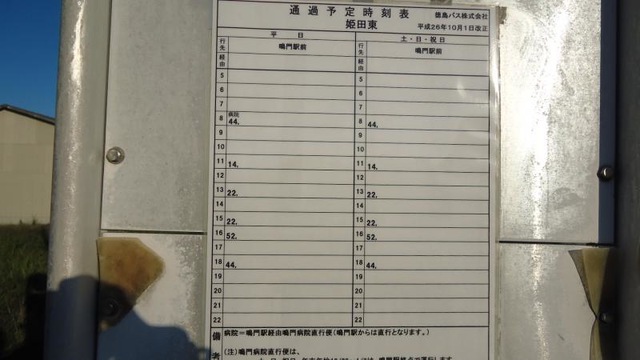 通過予定時刻表
姫田東
徳島バス株式会社
平成26年10月1日改正
行先
経由
平 日
鳴門駅前
行先
経由
土・日・祝日
鳴門駅前
5 5
6 6
7 7
8 病院 44, 8 44,
9 9
10 10
11 14, 11 14,
12 12
13 22, 13 22,
14 14
15 22, 15 22,
16 52, 16 52,
17 17
18 44, 18 44,
19 19
20 20
21 21
22 22
備考
病院=鳴門駅経由鳴門病院直行便(鳴門駅からは直行となります。)
(注)鳴門病院直行便は、